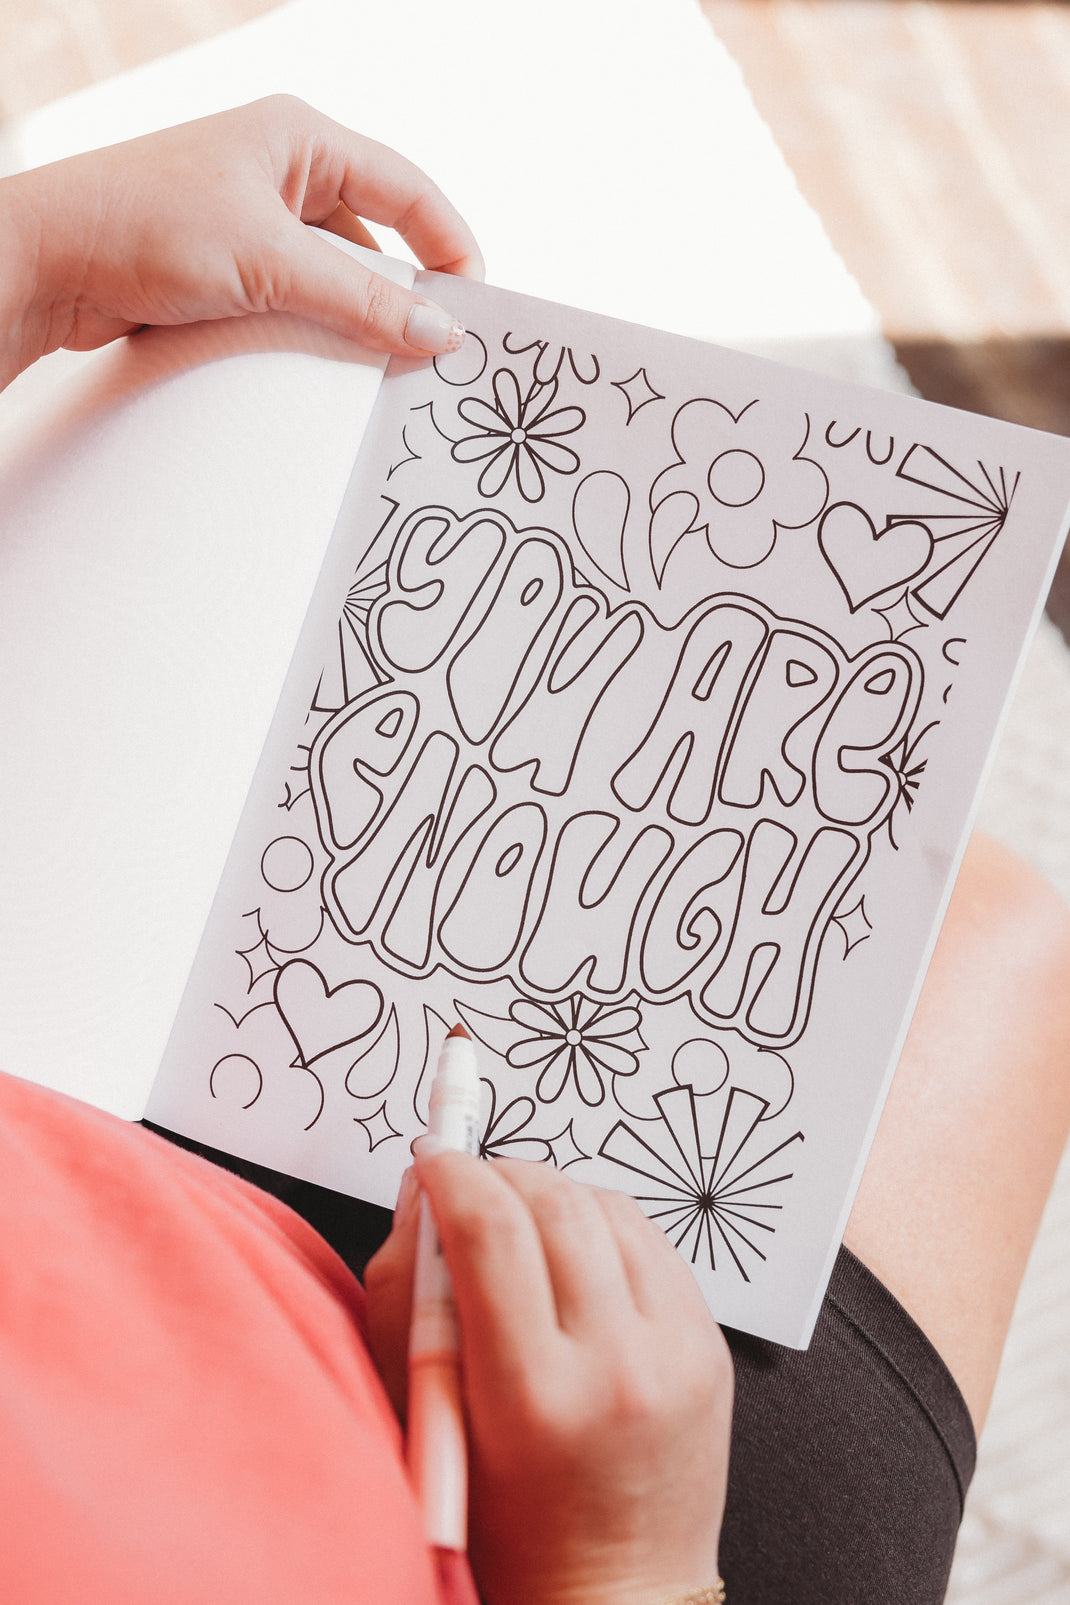 YOU ARE
ENOUGH